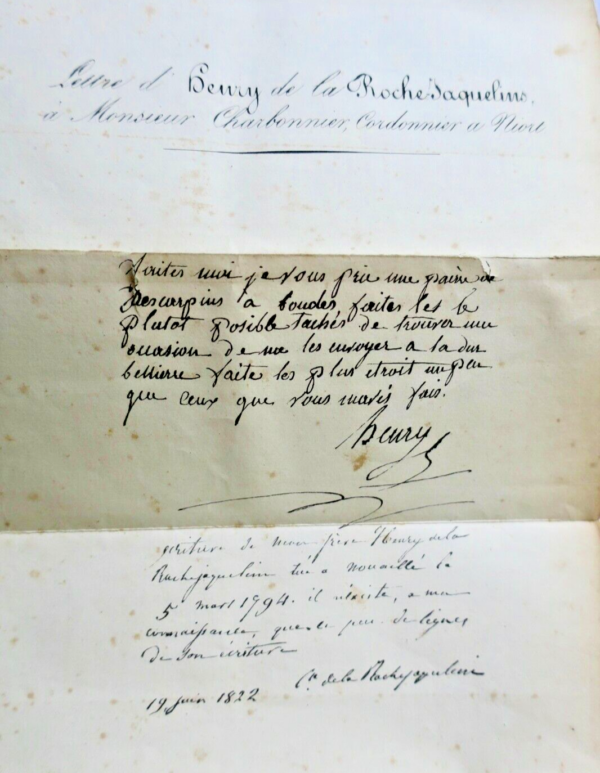 Lettre d' Henry de la RocheJaquelins,
à Monsieur Charbonnier, Cordonnier a Niort
faites moi je vous prie une paire de
descarpins à boucles faites les le
plutot posible tachés de trouver une
occasion de me les envoyer a la dur
bellierre faite les plus etroit un peu
que ceux que vous mavés fais.
henry
ecriture de mon frère Henry de la
Rochejaquelein tué a nouaillé le
5 mars 1794. il n'existe, a ma
connaissance, que ce peu de lignes
de son écriture
de la Rochejaquelein
19 juin 1822